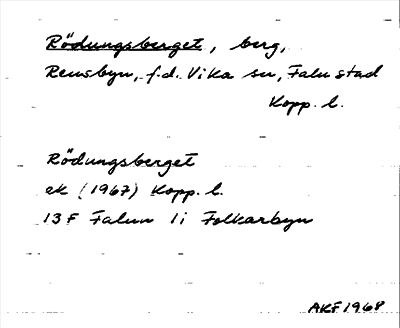 Rödungsberget, berg,
Rensbyn, f.d. Vika sn, Falu stad
Kopp. l.
Rödungsberget
ek (1967) Kopp. l.
13F Falun 1i Folkarbyn
AKF 1968